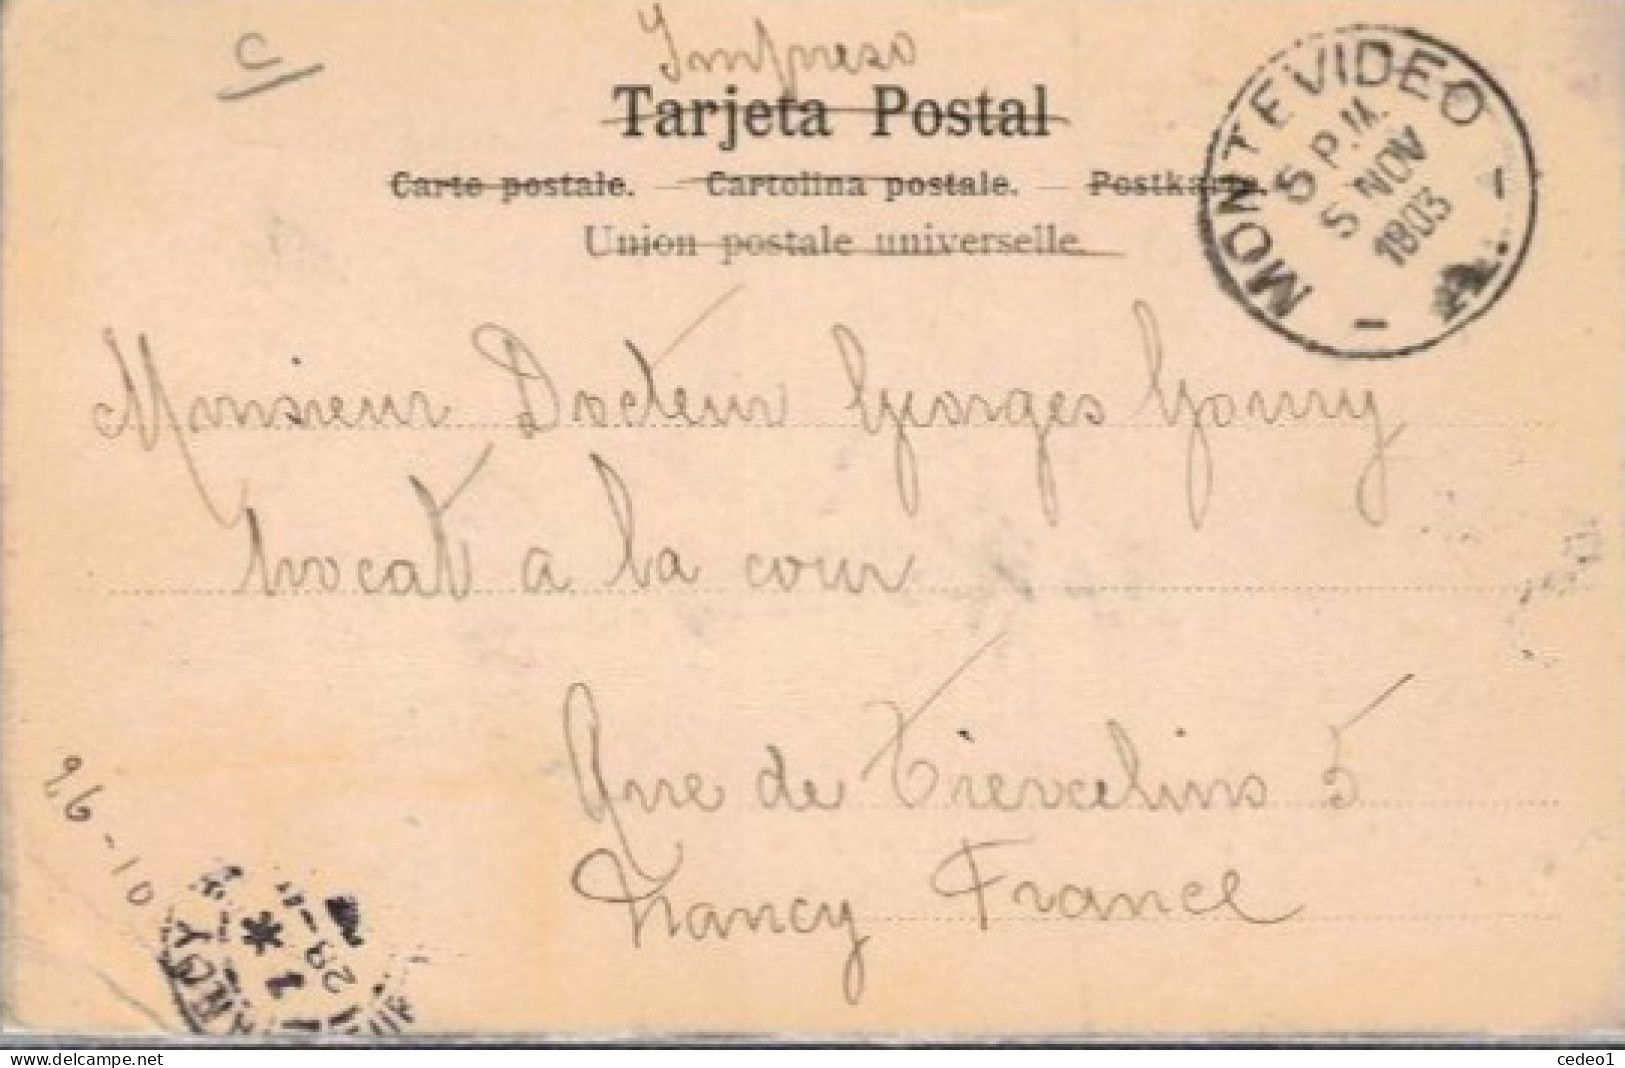 C
Impreso
Tarjeta Postal
Carte postale. — Cartolina postale. — Postkarte.
Union postale universelle.
MONTEVIDEO
6 P.M.
5 NOV
1803
Monsieur Docteur Georges Goury
Avocat a la cour
Rue de 5
Nancy France
26-10
NANCY
cedeo1